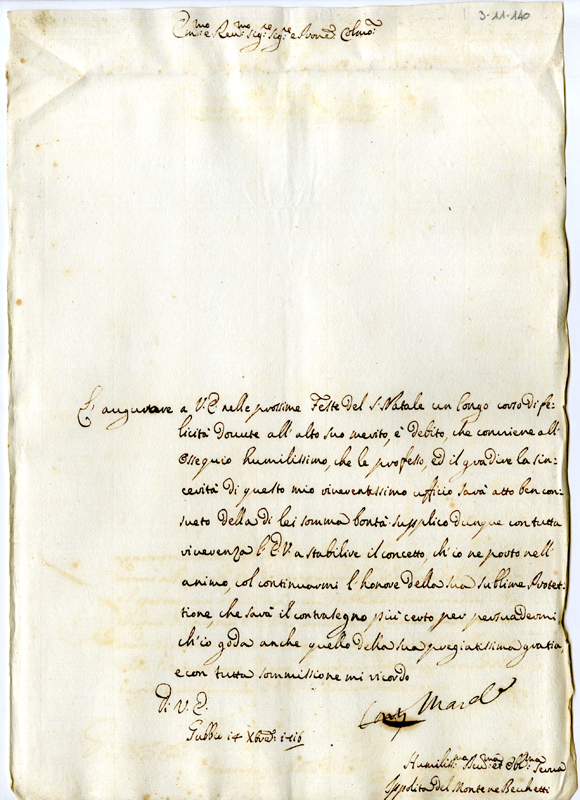 3-11-140
Em.mo e Rev.mo Sig.re Sig.re e Pron.e Colmo.
L'augurare a V. E. nelle prossime Feste del S. Natale un longo corso di fe=
licità dovute all'alto suo merito, è debito, che conviene all'
osseguio humilissimo, che le professo, ed il gradire la sin=
cerità di questo mio riverentissimo ufficio sarà atto ben con=
sueto della di lei somma bontà. Supplico dunque con tutta
riverenza l'E. V. a stabilire il concetto, ch'io ne porto nell'
animo, col continuarmi l'honore della sua sublime Protet=
tione, che sarà il contrasegno più certo per persuadermi,
ch'io goda anche quello della sua pregiatissima gratia,
e con tutta sommissione mi ricordo
Di V. E.
Gubbio 14 Xbre
Humiliss.ma Dev.ma et Obl.ma Serva
Ippolita del Monte ne Becchetti